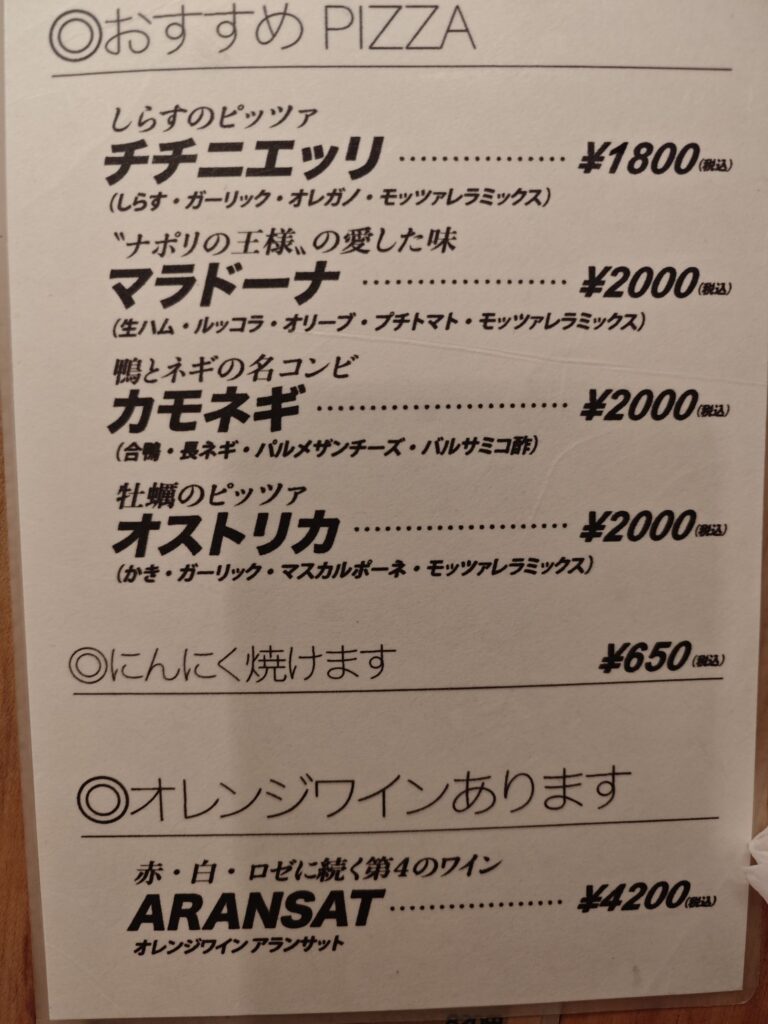 ◎おすすめ PIZZA
しらすのピッツァ
チチニエッリ ················ ¥1800(税込)
(しらす・ガーリック・オレガノ・モッツァレラミックス)
〝ナポリの王様〟の愛した味
マラドーナ ···················· ¥2000(税込)
(生ハム・ルッコラ・オリーブ・プチトマト・モッツァレラミックス)
鴨とネギの名コンビ
カモネギ ························ ¥2000(税込)
(合鴨・長ネギ・パルメザンチーズ・バルサミコ酢)
牡蠣のピッツァ
オストリカ ···················· ¥2000(税込)
(かき・ガーリック・マスカルポーネ・モッツァレラミックス)
◎にんにく焼けます ¥650(税込)
◎オレンジワインあります
赤・白・ロゼに続く第4のワイン
ARANSAT ················· ¥4200(税込)
オレンジワイン アランサット